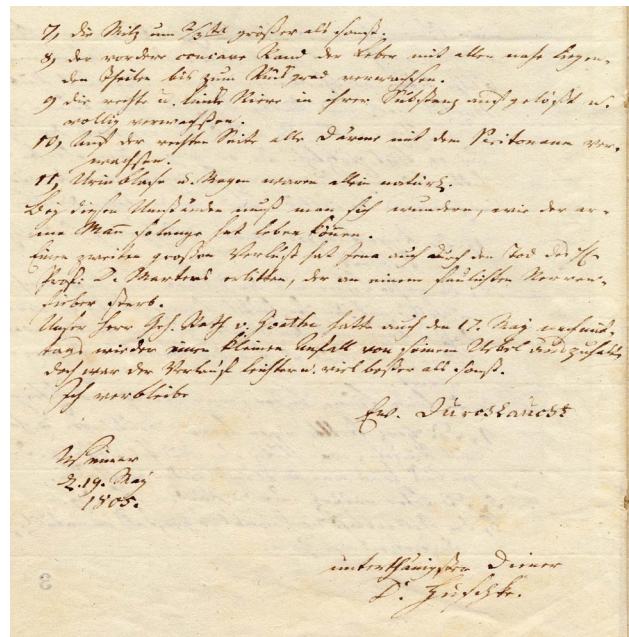 7, die Milz um 2/3tel größer als sonst.
8, der vordere concave Rand der Leber mit allen nahe liegen-
den Theilen bis zum Rückgrad verwachsen.
9, die rechte u. linke Niere in ihrer Substanz aufgelößt u.
völlig verwachsen.
10, Auf der rechten Seite alle Därme mit dem Peritonaeum ver-
wachsen.
11, Urinblase u. Magen waren allein natürl.
Bei diesen Umständen muß man sich wundern, wie der ar-
me Mann so lange hat leben können.
Einen zweiten großen Verlust hat Jena auch durch den Tod des H
Prof. D. Martens erlitten, der an einem faulichten Nerven-
fieber starb.
Unser Herr Geh. Rath v. Goethe hatte auch den 17. May nachmit-
tags wieder einen kleinen Anfall von seinem Uebel auszuhalten
doch war der Verlauf leichter u. viel besser als sonst.
Ich verbleibe
Ew. Durchlaucht
Weimar
d. 19. May
1805.
unterthänigster Diener
D. Huschke.